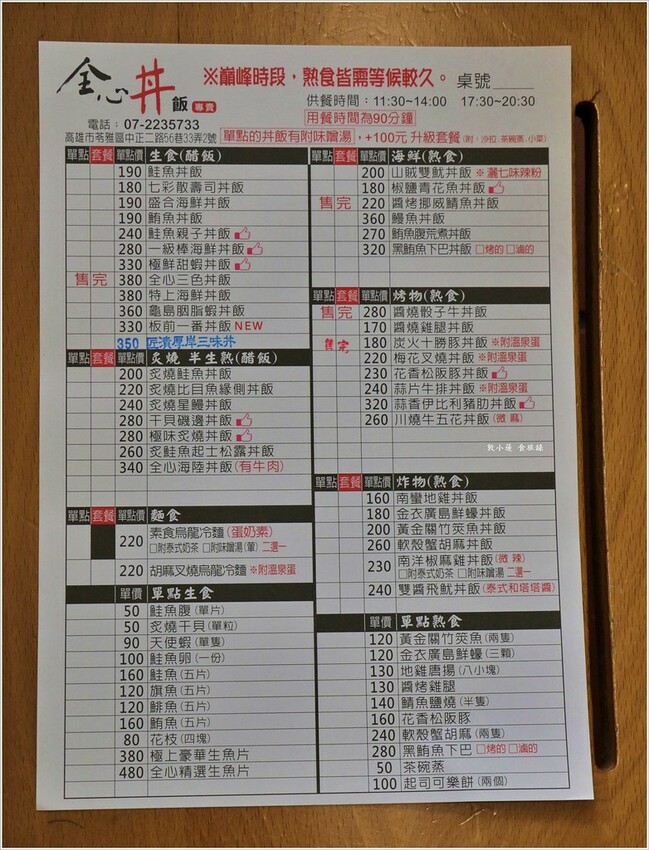 全心丼飯 專賣
※巔峰時段，熟食皆需等候較久。 桌號
供餐時間：11:30~14:00 17:30~20:30
用餐時間為90分鐘
電話：07-2235733
高雄市苓雅區中正二路56巷33弄2號 單點的丼飯有附味噌湯，+100元 升級套餐 (附：沙拉.茶碗蒸.小菜)
單點 套餐 單點價 生食(醋飯)
190 鮭魚丼飯
180 七彩散壽司丼飯
190 盛合海鮮丼飯
190 鮪魚丼飯
240 鮭魚親子丼飯
280 一級棒海鮮丼飯
330 極鮮甜蝦丼飯
售完 380 全心三色丼飯
380 特上海鮮丼飯
360 龜島胭脂蝦丼飯
330 板前一番丼飯 NEW
350 匠濱厚岸三味丼
單點 套餐 單點價 炙燒 半生熟(醋飯)
200 炙燒鮭魚丼飯
220 炙燒比目魚緣側丼飯
240 炙燒星鰻丼飯
280 干貝磯邊丼飯
280 極味炙燒丼飯
260 炙鮭魚起士松露丼飯
340 全心海陸丼飯 (有牛肉)
單點 套餐 單點價 麵食
220 素食烏龍冷麵 (蛋奶素)
□附泰式奶茶 □附味噌湯(葷) 二選一
220 胡麻叉燒烏龍冷麵 ※附溫泉蛋
單價 單點生食
50 鮭魚腹 (單片)
50 炙燒干貝 (單粒)
90 天使蝦 (單隻)
100 鮭魚卵 (一份)
160 鮭魚 (五片)
120 旗魚 (五片)
120 鯡魚 (五片)
160 鮪魚 (五片)
80 花枝 (四塊)
380 極上豪華生魚片
480 全心精選生魚片
單點 套餐 單點價 海鮮(熟食)
200 山賊雙魷丼飯 ※灑七味辣粉
180 椒鹽青花魚丼飯
售完 220 醬烤挪威鯖魚丼飯
360 鰻魚丼飯
270 鮪魚腹荒煮丼飯
320 黑鮪魚下巴丼飯 □烤的 □滷的
單點 套餐 單點價 烤物(熟食)
售完 280 醬燒骰子牛丼飯
170 醬燒雞腿丼飯
售完 180 炭火十勝豚丼飯 ※附溫泉蛋
220 梅花叉燒丼飯 ※附溫泉蛋
230 花香松阪豚丼飯
240 蒜片牛排丼飯 ※附溫泉蛋
320 蒜香伊比利豬肋丼飯
260 川燒牛五花丼飯 (微 麻)
敦小蓮 食旅錄
單點 套餐 單點價 炸物(熟食)
160 南蠻地雞丼飯
180 金衣廣島鮮蠔丼飯
200 黃金關竹筴魚丼飯
260 軟殼蟹胡麻丼飯
230 南洋椒麻雞丼飯 (微 辣)
□附泰式奶茶 □附味噌湯 二選一
240 雙醬飛魷丼飯 (泰式和塔塔醬)
單價 單點熟食
120 黃金關竹筴魚 (兩隻)
120 金衣廣島鮮蠔 (三顆)
130 地雞唐揚 (八小塊)
130 醬烤雞腿
140 鯖魚鹽燒 (半隻)
160 花香松阪豚
240 軟殼蟹胡麻 (兩隻)
280 黑鮪魚下巴 □烤的 □滷的
50 茶碗蒸
100 起司可樂餅 (兩個)